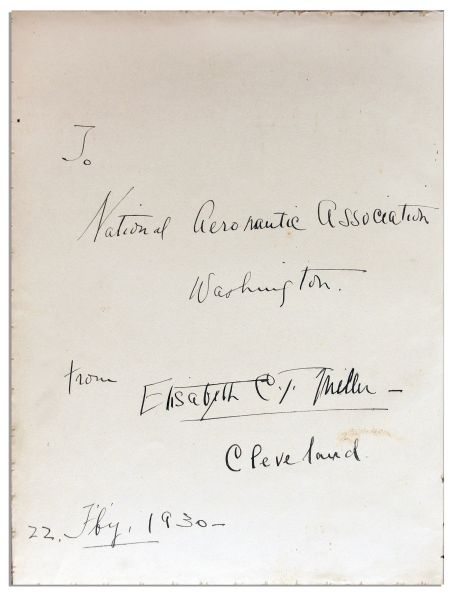 To
National Aeronautic Association
Washington.
from
Elisabeth C. T. Miller –
Cleveland.
22. F'by. 1930–